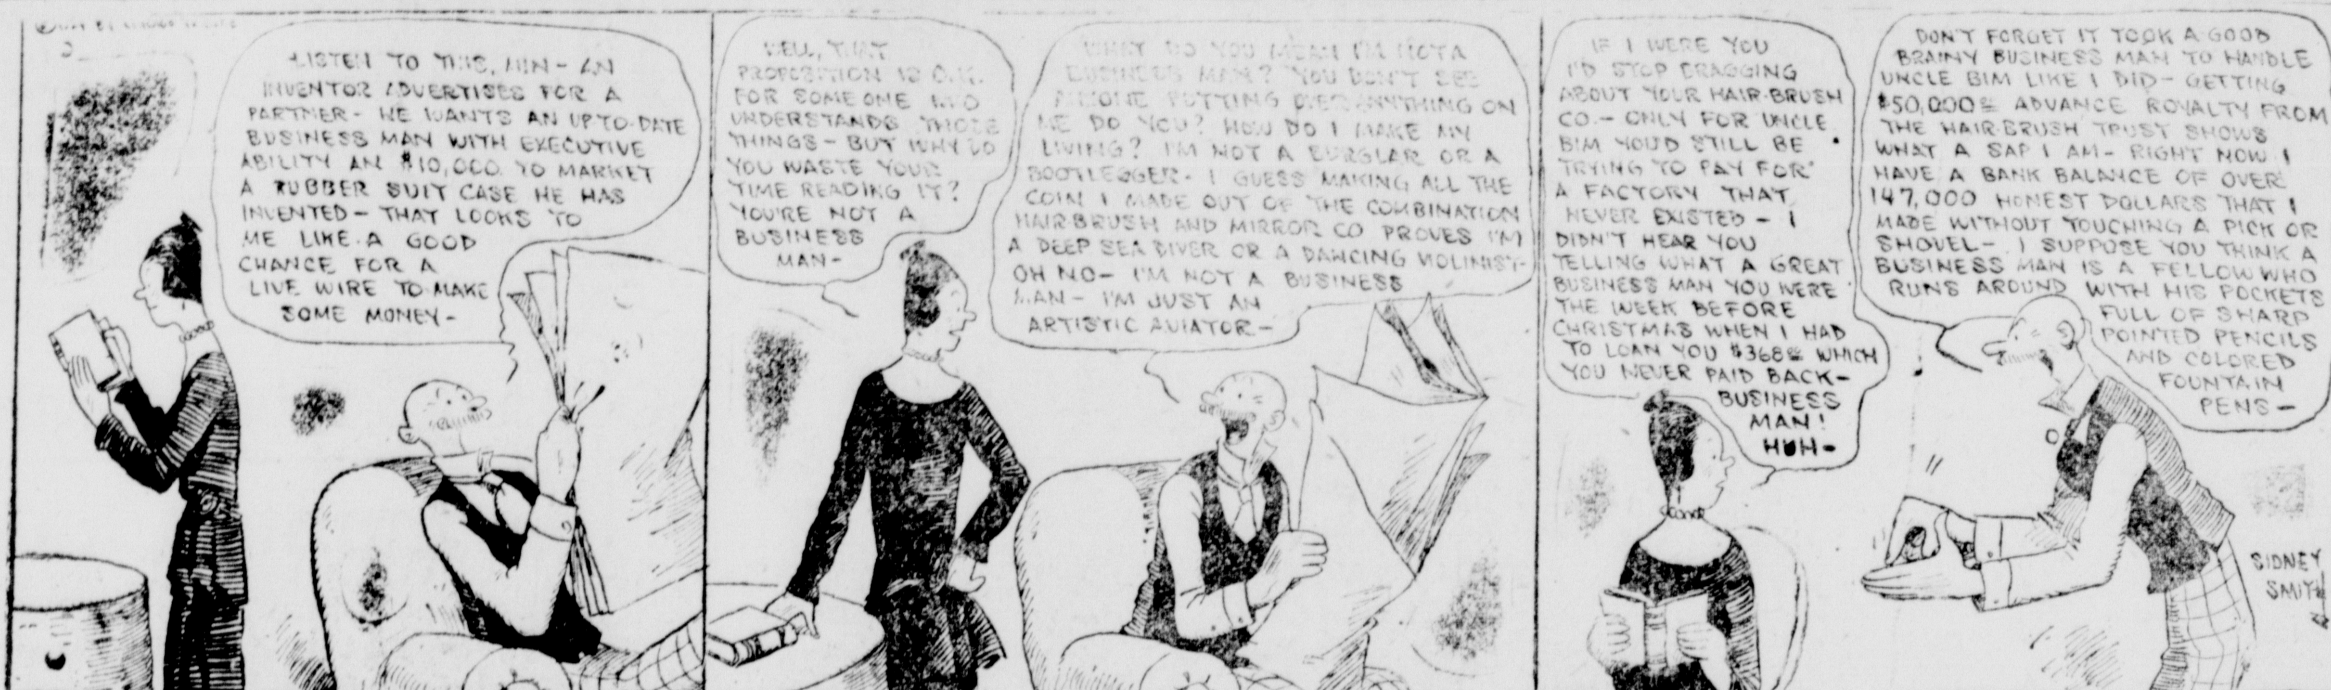 LISTEN TO THIS, MIN - AN
INVENTOR ADVERTISES FOR A
PARTNER - HE WANTS AN UP TO-DATE
BUSINESS MAN WITH EXECUTIVE
ABILITY AN $10,000 TO MARKET
A RUBBER SUIT CASE HE HAS
INVENTED - THAT LOOKS TO
ME LIKE A GOOD
CHANCE FOR A
LIVE WIRE TO MAKE
SOME MONEY -
WELL, THAT
PROPOSITION IS O.K.
FOR SOMEONE WHO
UNDERSTANDS THOSE
THINGS - BUT WHY DO
YOU WASTE YOUR
TIME READING IT?
YOU'RE NOT A
BUSINESS
MAN -
WHAT DO YOU MEAN I'M NOT A
BUSINESS MAN? YOU DON'T SEE
ANYONE PUTTING OVER ANYTHING ON
ME DO YOU? HOW DO I MAKE MY
LIVING? I'M NOT A BURGLAR OR A
BOOTLEGGER - I GUESS MAKING ALL THE
COIN I MADE OUT OF THE COMBINATION
HAIRBRUSH AND MIRROR CO PROVES I'M
A DEEP SEA DIVER OR A DANCING VIOLINIST -
OH NO - I'M NOT A BUSINESS
MAN - I'M JUST AN
ARTISTIC AVIATOR -
IF I WERE YOU
I'D STOP BRAGGING
ABOUT YOUR HAIR-BRUSH
CO. - ONLY FOR UNCLE
BIM YOU'D STILL BE
TRYING TO PAY FOR
A FACTORY THAT
NEVER EXISTED - I
DIDN'T HEAR YOU
TELLING WHAT A GREAT
BUSINESS MAN YOU WERE
THE WEEK BEFORE
CHRISTMAS WHEN I HAD
TO LOAN YOU $368 WHICH
YOU NEVER PAID BACK -
BUSINESS
MAN!
HUH -
DON'T FORGET IT TOOK A GOOD
BRAINY BUSINESS MAN TO HANDLE
UNCLE BIM LIKE I DID - GETTING
$50,000 ADVANCE ROYALTY FROM
THE HAIR BRUSH TRUST SHOWS
WHAT A SAP I AM - RIGHT NOW I
HAVE A BANK BALANCE OF OVER
147,000 HONEST DOLLARS THAT I
MADE WITHOUT TOUCHING A PICK OR
SHOVEL - I SUPPOSE YOU THINK A
BUSINESS MAN IS A FELLOW WHO
RUNS AROUND WITH HIS POCKETS
FULL OF SHARP
POINTED PENCILS
AND COLORED
FOUNTAIN
PENS -
SIDNEY
SMITH